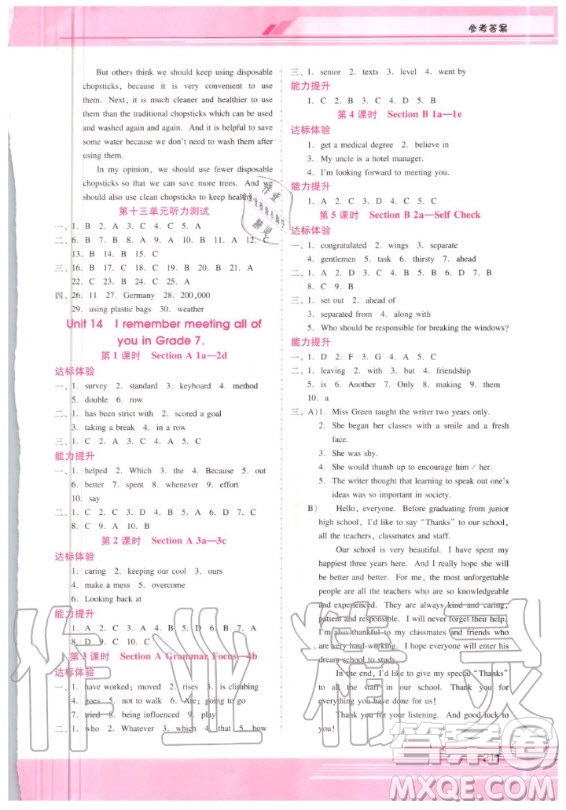 参考答案
But others think we should keep using disposable
chopsticks, because it is very convenient to use
them. Next, it is much cleaner and healthier to use
them than the traditional chopsticks which can be used
and washed again and again. It is helpful to save
some water because we don't need to wash them after
using them.
In my opinion, we should use fewer disposable
chopsticks so that we can save more trees. And we
should also use clean chopsticks to keep healthy.
第十三单元听力测试
一、1. B 2. A 3. C 4. C 5. A
二、6. B 7. B 8. A 9. C 10. C 11. A 12. B
13. B 14. B 15. C
三、16. B 17. B 18. C 19. C 20. A 21. A
22. C 23. C 24. B 25. A
四、26. 11 27. Germany 28. 200,000
29. using plastic bags 30. weather
Unit 14 I remember meeting all of
you in Grade 7.
第 1 课时 Section A 1a—2d
达标体验
一、1. survey 2. standard 3. keyboard 4. method
5. double 6. row
二、1. has been strict with 2. looking back at
3. taking a break 4. in a row
三、1. C 2. A 3. A 4. A 5. C
能力提升
一、1. helped 2. Which 3. the 4. Because 5. out
6. better 7. sent 8. whenever 9. effort
10. say
二、1. C 2. D 3. D 4. B 5. A 6. D 7. B 8. B
9. C 10. A
第 2 课时 Section A 3a—3c
达标体验
1. caring 2. keeping our cool 3. ours
4. make a mess 5. overcome
6. Looking back at
能力提升
1. A 2. C 3. C 4. D 5. B 6. B 7. A
8. D 9. C 10. B
第 3 课时 Section A Grammar Focus—4b
达标体验
一、1. have worked; moved 2. rises 3. is climbing
4. goes 5. not to walk 6. Are; going to go
7. tried 8. being influenced 9. play
二、1. who 2. What 3. which 4. that 5. how
三、1. senior 2. texts 3. level 4. went by
能力提升
1. C 2. B 3. C 4. D 5. B
第 4 课时 Section B 1a—1e
达标体验
1. get a medical degree 2. believe in
3. My uncle is a hotel manager.
4. I'm looking forward to meeting you.
能力提升
1. A 2. D 3. C 4. A 5. C
第 5 课时 Section B 2a—Self Check
达标体验
一、1. congratulated 2. wings 3. separate
4. gentlemen 5. task 6. thirsty 7. ahead
二、1. C 2. A 3. A 4. D 5. D 6. B 7. B
8. C 9. B
三、1. set out 2. ahead of
3. separated from 4. along with
5. Who should be responsible for breaking the windows?
能力提升
一、1. D 2. C 3. D 4. B 5. A
二、1. leaving 2. with 3. but 4. friendship
5. is 6. Another 7. Only 8. making 9. them
10. a
三、A) 1. Miss Green taught the writer two years only.
2. She began her classes with a smile and a fresh
face.
3. She was shy.
4. She would thumb up to encourage him / her.
5. The writer thought that learning to speak out
ideas was so important in society.
B) Hello, everyone. Before graduating from junior
high school, I'd like to say "Thanks" to our school,
all the teachers, classmates and staff.
Our school is very beautiful. I have spent my
happiest three years here. And I'm sure I will have
happy memories of it. And, the most unforgettable
people are all the teachers who are so knowledgeable
and experienced. They are always kind and caring,
patient and responsible. I'm grateful to them all.
I'm also thankful to my classmates and friends who
are very friendly and helpful. I hope all of us enter his
dream school to study.
In the end, I'd like to give my special "Thanks"
to all the staff in our school for your service.
Thank you for your listening. And good luck to
you!
答案圈
MXQE.COM